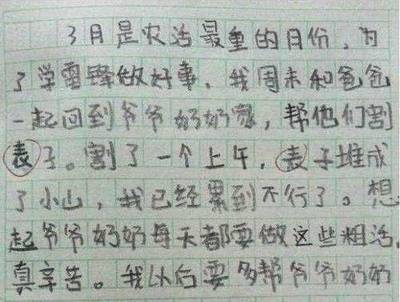 3月是农活最重的月份,为
了学雷锋做好事,我周末和爸爸
一起回到爷爷奶奶家,帮他们割
表子。割了一个上午,表子堆成
了小山,我已经累到不行了。想
起爷爷奶奶每天都要做这些粗活,
真辛苦。我以后要多帮爷爷奶奶